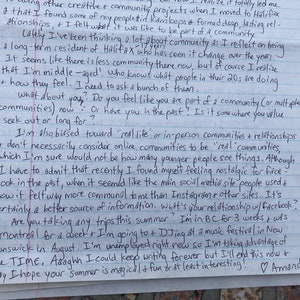 doing other creative & community projects when I moved to Halifax
& that I found some of my people at Rainbloops & formed deep, lasting rel-
ationships, & I felt what it was like to be part of a community.
Lately I've been thinking a lot about community as I reflect on being
a long term resident of Halifax who has seen it change over the years.
It seems like there is less community there now, but of course I realize
that I'm middle-aged & who knows what people in their 20s are doing
& how they feel. I need to ask a bunch of them.
What about you? Do you feel like you are part of a community (or multiple
communities) now? Or have you in the past? Is it somewhere you value
& seek out or long for?
I'm also biased toward "real life" or in-person communities & relationships
& don't necessarily consider online communities to be "real" communities,
which I'm sure would not be how many younger people see things. Although
I have to admit that recently I found myself feeling nostalgic for Face
book in the past, when it seemed like the main social media site people used &
how it felt way more communal to me than Instagram & other sites. It's
certainly a better source of information. What's your relationship w/ Facebook?
Are you taking any trips this summer? I'm in BC for 3 weeks & was
Montreal for a week & I'm going to & DJing at a music festival in New
Brunswick in August. I'm unemployed right now so I'm taking advantage of
TIME. Aaaagh I could keep writing forever but I'll end this now &
say I hope your summer is magical & fun or at least interesting!
♡ Amanda